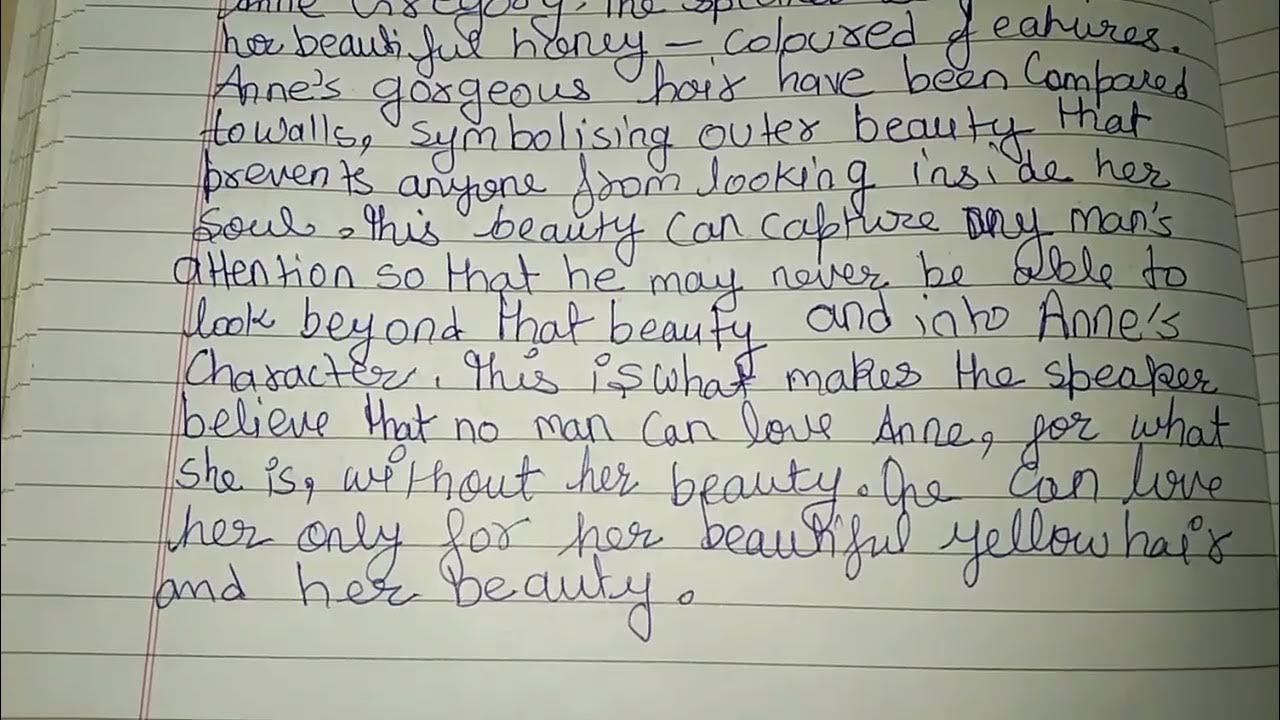 Anne Gregory, the
her beautiful honey - coloured features.
Anne's gorgeous hair have been Compared
to walls, symbolising outer beauty that
prevents anyone from looking inside her
Soul. This beauty can capture any man's
attention so that he may never be able to
look beyond that beauty and into Anne's
Character. This is what makes the speaker
believe that no man can love Anne, for what
she is, without her beauty. One can love
her only for her beautiful yellow hair
and her beauty.